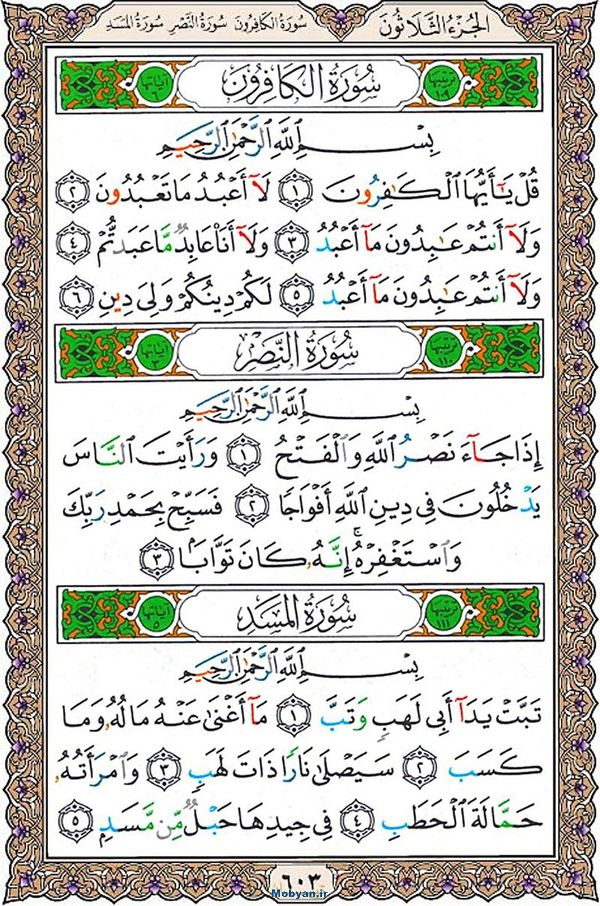 الجُزءُ الثَّلَاثُونَ سُورَةُ الكَافِرُونَ سُورَةُ النَّصْرِ سُورَةُ المَسَدِ
سُورَةُ الكَافِرُونَ
بِسْمِ ٱللَّهِ ٱلرَّحْمَٰنِ ٱلرَّحِيمِ
قُلْ يَـٰٓأَيُّهَا ٱلْكَـٰفِرُونَ ١ لَآ أَعْبُدُ مَا تَعْبُدُونَ ٢
وَلَآ أَنتُمْ عَـٰبِدُونَ مَآ أَعْبُدُ ٣ وَلَآ أَنَا۠ عَابِدٌ مَّا عَبَدتُّمْ ٤
وَلَآ أَنتُمْ عَـٰبِدُونَ مَآ أَعْبُدُ ٥ لَكُمْ دِينُكُمْ وَلِىَ دِينِ ٦
سُورَةُ النَّصْرِ
بِسْمِ ٱللَّهِ ٱلرَّحْمَٰنِ ٱلرَّحِيمِ
إِذَا جَآءَ نَصْرُ ٱللَّهِ وَٱلْفَتْحُ ١ وَرَأَيْتَ ٱلنَّاسَ
يَدْخُلُونَ فِى دِينِ ٱللَّهِ أَفْوَاجًا ٢ فَسَبِّحْ بِحَمْدِ رَبِّكَ
وَٱسْتَغْفِرْهُ ۚ إِنَّهُۥ كَانَ تَوَّابًۢا ٣
سُورَةُ المَسَدِ
بِسْمِ ٱللَّهِ ٱلرَّحْمَٰنِ ٱلرَّحِيمِ
تَبَّتْ يَدَآ أَبِى لَهَبٍ وَتَبَّ ١ مَآ أَغْنَىٰ عَنْهُ مَالُهُۥ وَمَا
كَسَبَ ٢ سَيَصْلَىٰ نَارًا ذَاتَ لَهَبٍ ٣ وَٱمْرَأَتُهُۥ
حَمَّالَةَ ٱلْحَطَبِ ٤ فِى جِيدِهَا حَبْلٌ مِّن مَّسَدٍۭ ٥
٦٠٣
Mobyan.ir